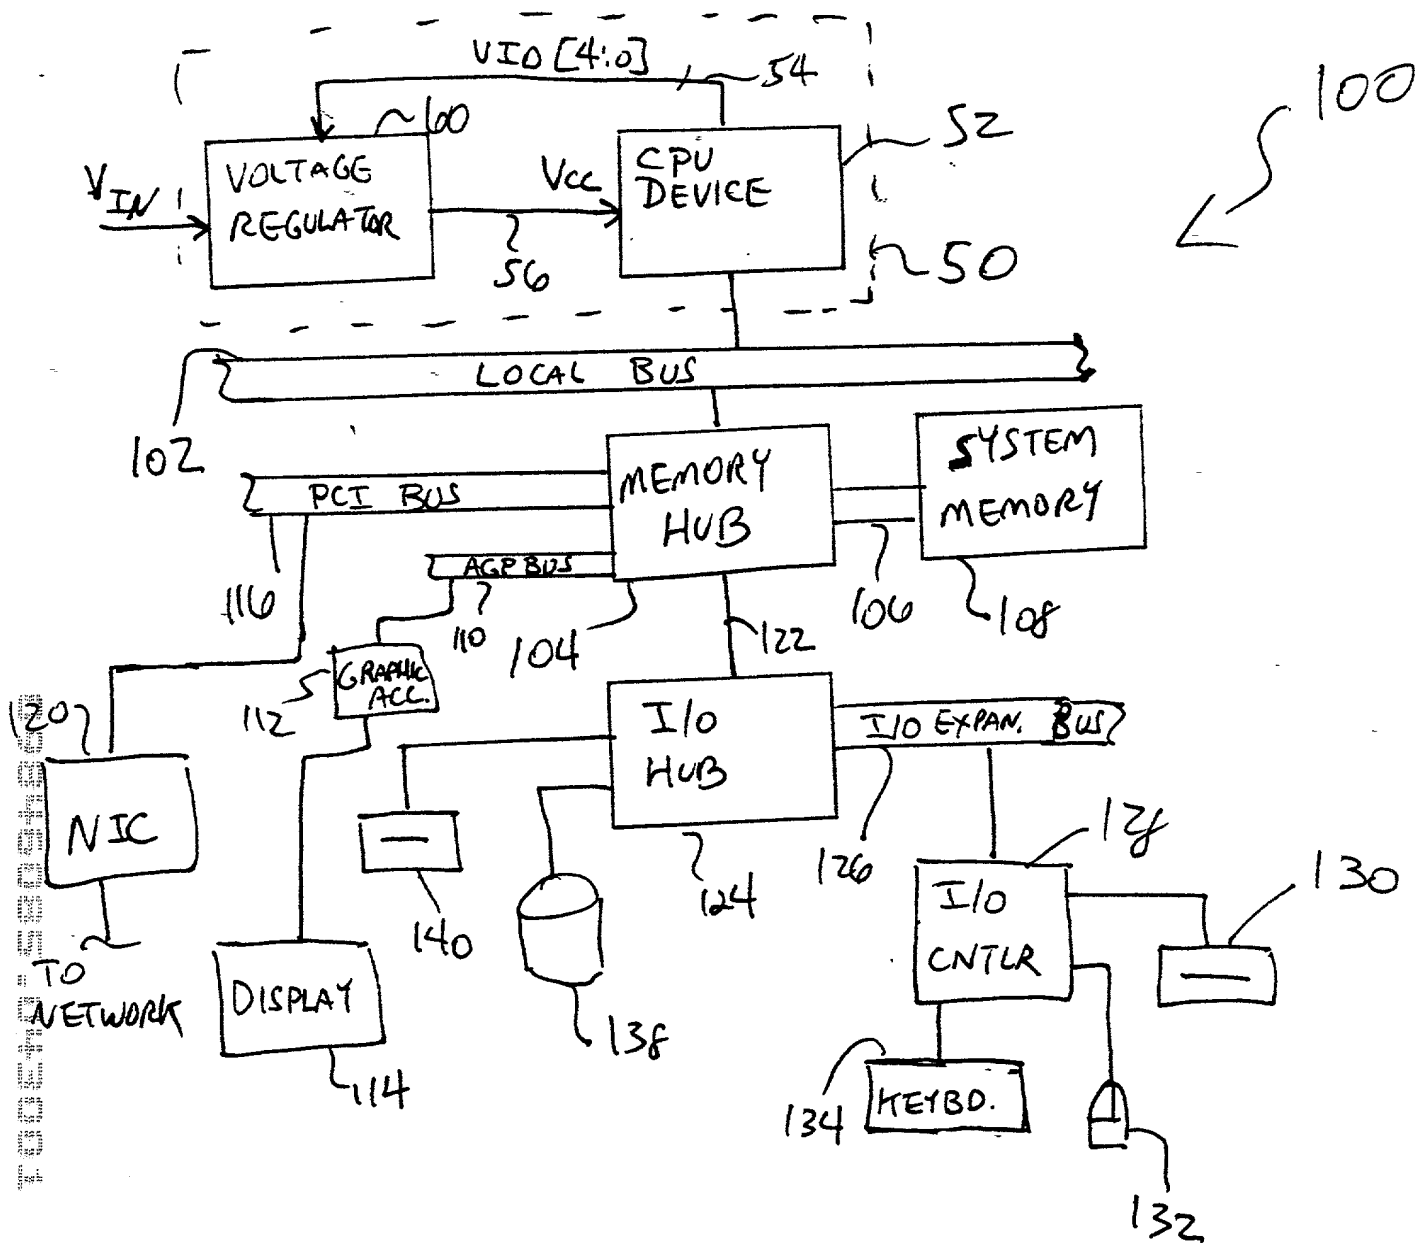 VID [4:0]
54
100
60
52
VIN
VOLTAGE
REGULATOR
Vcc
CPU
DEVICE
56
50
LOCAL BUS
102
PCI BUS
MEMORY
HUB
SYSTEM
MEMORY
AGP BUS
116
110
104
122
106
108
GRAPHIC
ACC.
112
120
I/O
HUB
I/O EXPAN. BUS
NIC
140
124
126
128
130
I/O
CNTLR
TO
NETWORK
DISPLAY
138
114
134
KEYBD.
132